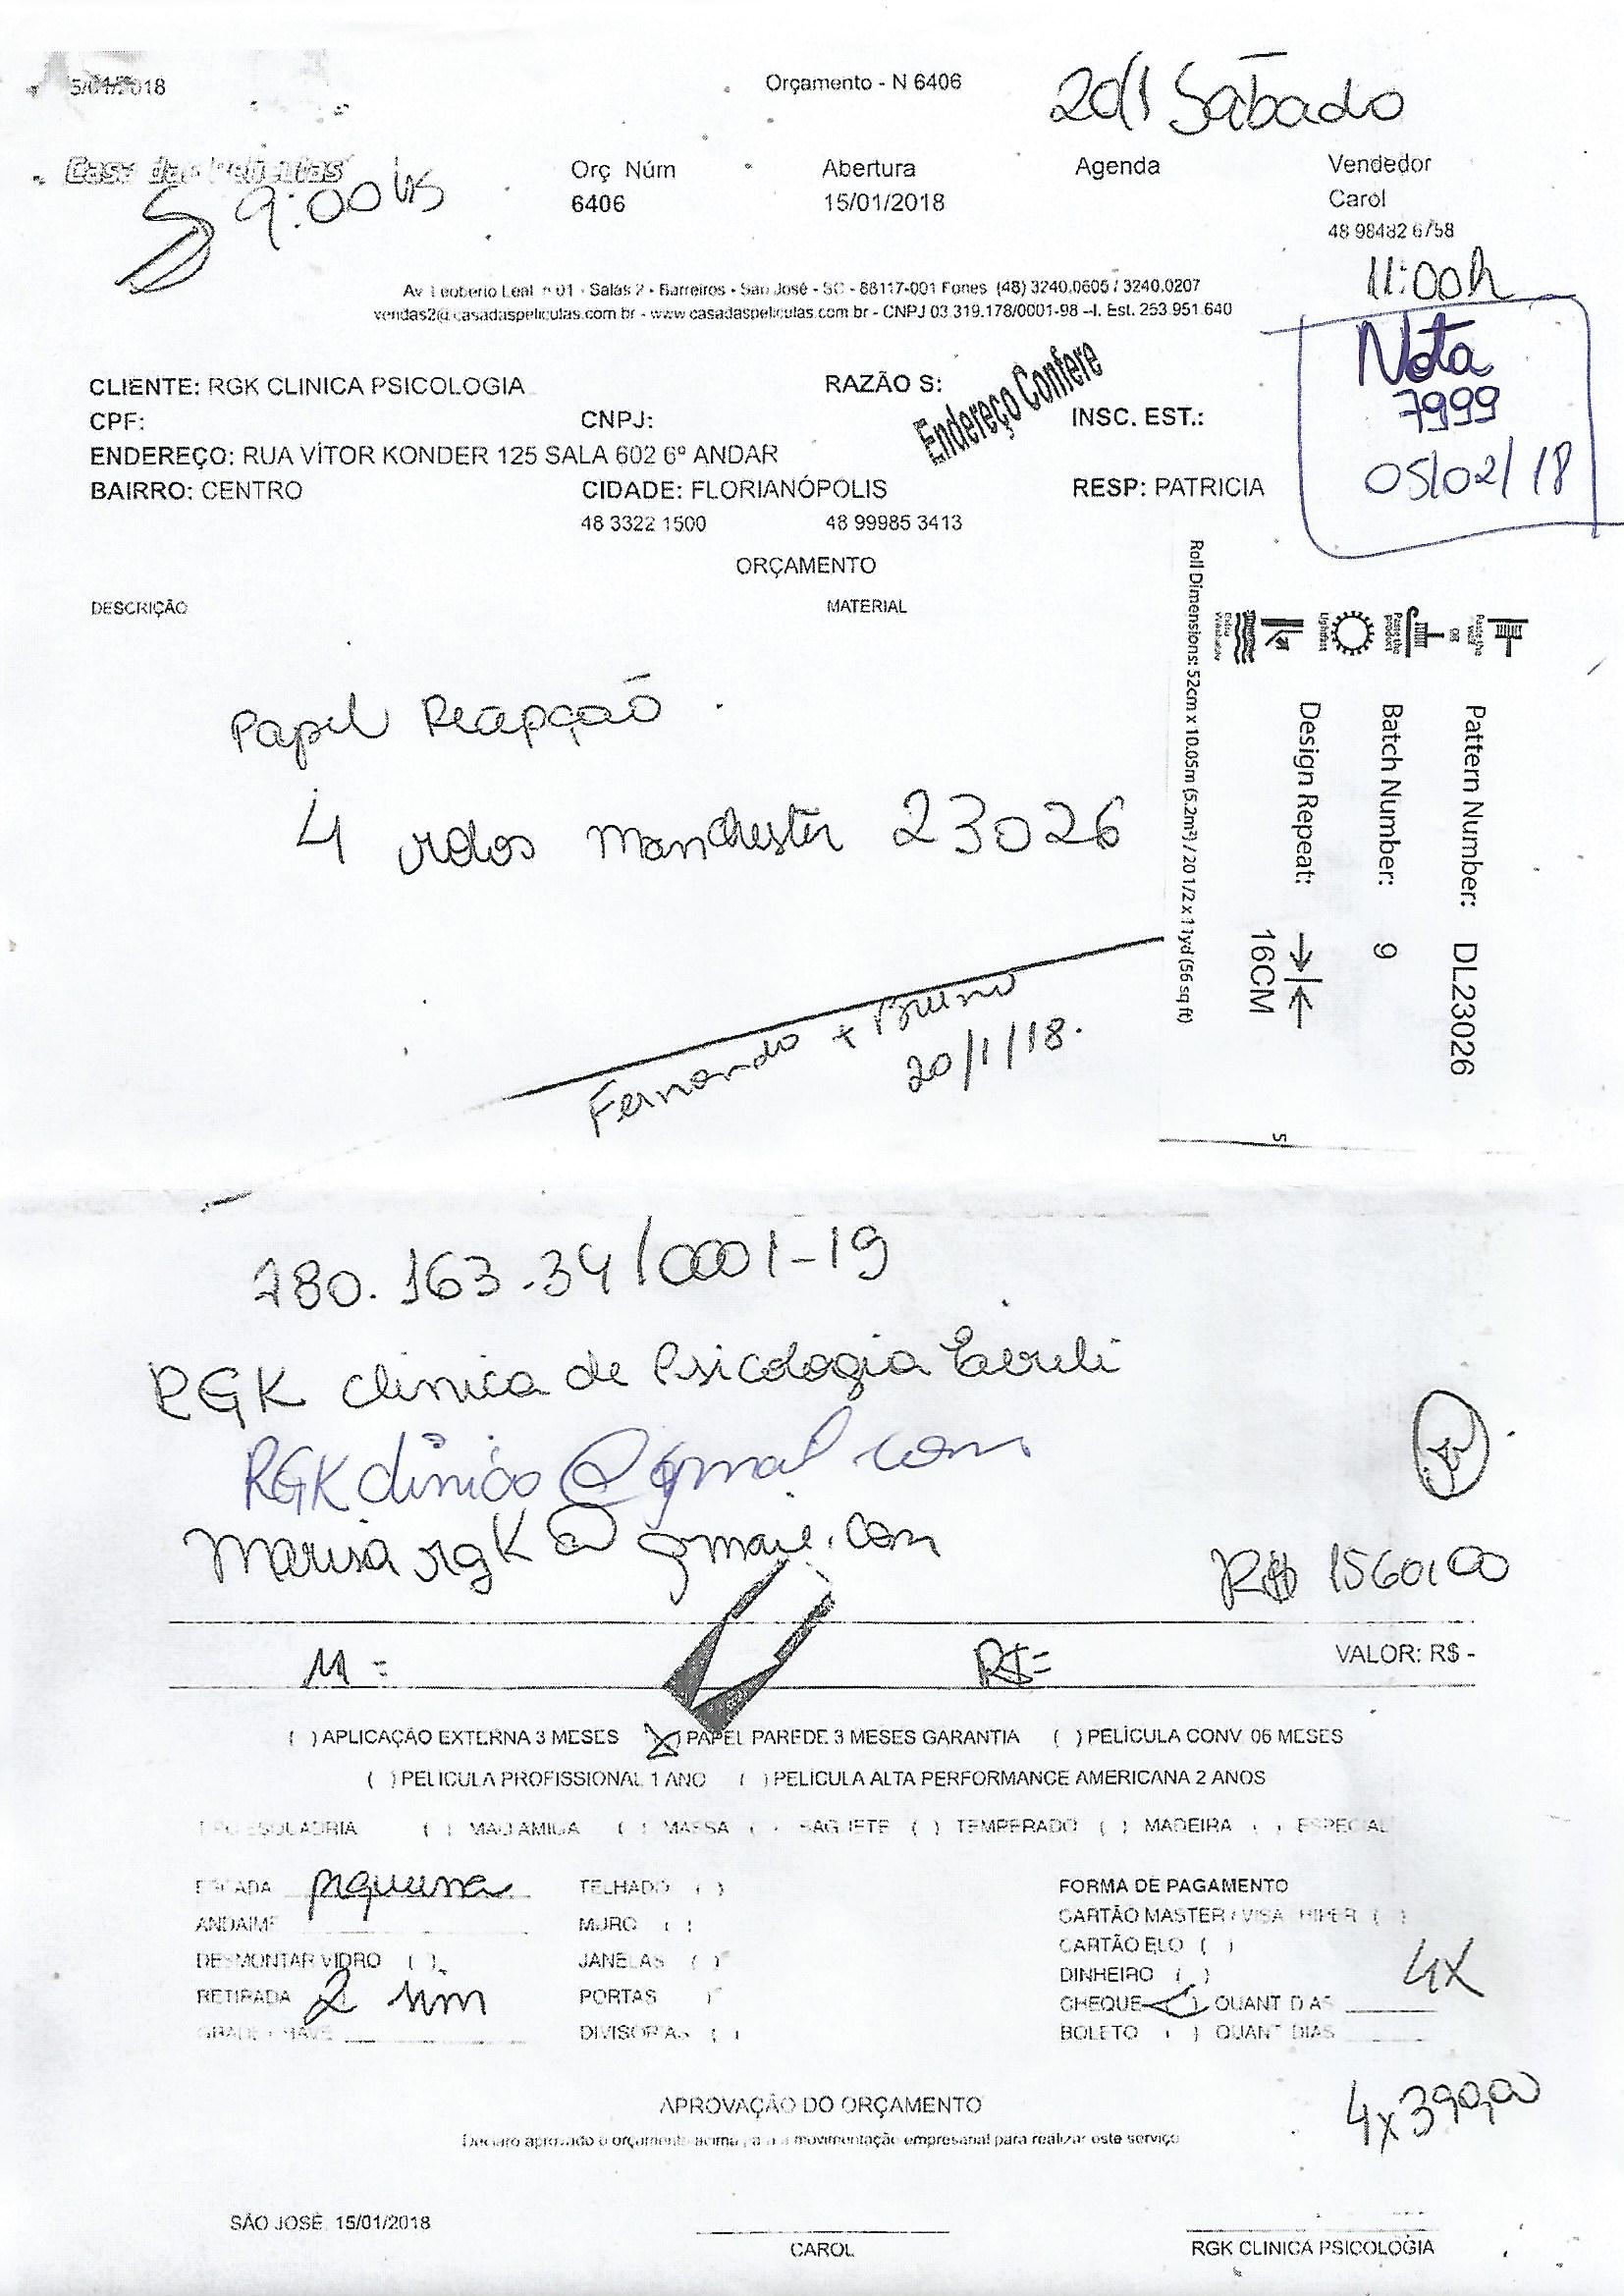 5/01/2018
Orçamento - N 6406
20/1 Sábado
Casa das Películas
9:00 hs
Orç Núm
Abertura
Agenda
Vendedor
6406
15/01/2018
Carol
48 98482 6758
11:00h
Salas 2 - Barreiros - São José - SC - 88117-001 Fones (48) 3240.0605 / 3240.0207
vendas2@casadaspeliculas.com br - www casadaspeliculas.com br - CNPJ 03 319.178/0001-98 –I. Est. 253 951 640
Nota
7999
05/02/18
CLIENTE: RGK CLINICA PSICOLOGIA
RAZÃO S:
Endereço Confere
CPF:
CNPJ:
INSC. EST.:
ENDEREÇO: RUA VÍTOR KONDER 125 SALA 602 6º ANDAR
BAIRRO: CENTRO
CIDADE: FLORIANÓPOLIS
RESP: PATRICIA
48 3322 1500
48 99985 3413
ORÇAMENTO
DESCRIÇÃO
MATERIAL
Papel Recepção
4 rolos Manchester 23026
Pattern Number: DL23026
Batch Number: 9
Design Repeat: 16CM
Roll Dimensions: 52cm x 10.05m (5.2m²) / 20 1/2 x 11yd (56 sq ft)
Paste the wall
OR
Paste the product
Lightfast
Fernando + Bruno
20/1/18.
780.163.34/0001-19
RGK clínica de Psicologia Eireli
RGKclinica@gmail com
marisa rgk@gmail.com
R$ 1560,00
M =
R$=
VALOR: R$ -
( ) APLICAÇÃO EXTERNA 3 MESES (X) PAPEL PAREDE 3 MESES GARANTIA ( ) PELÍCULA CONV 06 MESES
( ) PELICULA PROFISSIONAL 1 ANO ( ) PELÍCULA ALTA PERFORMANCE AMERICANA 2 ANOS
ESQUADRIA ( ) MASSA ( ) BAGUETE ( ) TEMPERADO ( ) MADEIRA ( ) ESPECIAL
ESCADA pequena
TELHADO ( )
FORMA DE PAGAMENTO
ANDAIME
MURO ( )
CARTÃO MASTER / VISA HIPER ( )
DESMONTAR VIDRO ( )
JANELAS ( )
CARTÃO ELO ( )
RETIRADA 2 um
PORTAS
DINHEIRO ( )
4X
DIVISORIAS ( )
CHEQUE ( ) QUANT DIAS
BOLETO ( ) QUANT DIAS
4x390,00
APROVAÇÃO DO ORÇAMENTO
Declaro aprovado o orçamento acima para a movimentação empresarial para realizar este serviço
SÃO JOSÉ, 15/01/2018
CAROL
RGK CLINICA PSICOLOGIA